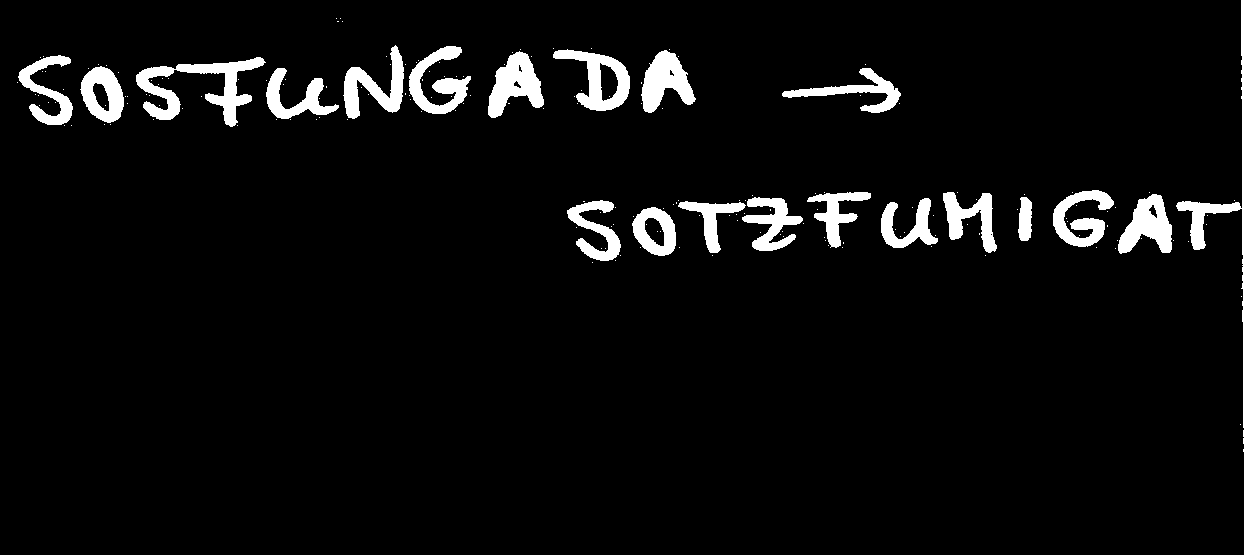 SOSFUNGADA →
SOTZFUMIGAT